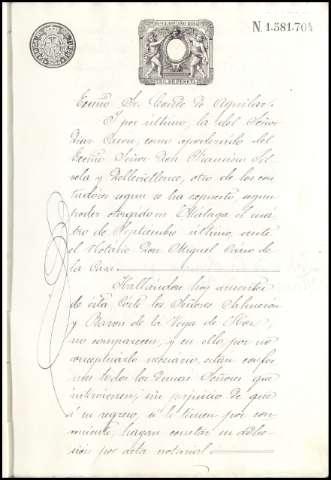 N. 1.581.704
Excmo Sr. Conde de Aguilar.
Y por último, la del Señor
Diaz como apoderado del
Excmo Señor Don Francisco Sil
vela y Dellevielleuze, otro de los con
tadores segun se ha expuesto segun
poder otorgado en Málaga el cua
tro de Septiembre último, ante
el Notario Don Miguel Cano de
la Casa
Hallándose hoy ausentes
de esta Corte los Señores
y Baron de la Vega de Hoz,
no comparecen, y en ello por no
conceptuarlo necesario, estan confor
mes todos los demas Señores que
intervienen, sin perjuicio de que
á su regreso, si lo tienen por con
veniente, hagan constar su adhe
sion por acta notarial